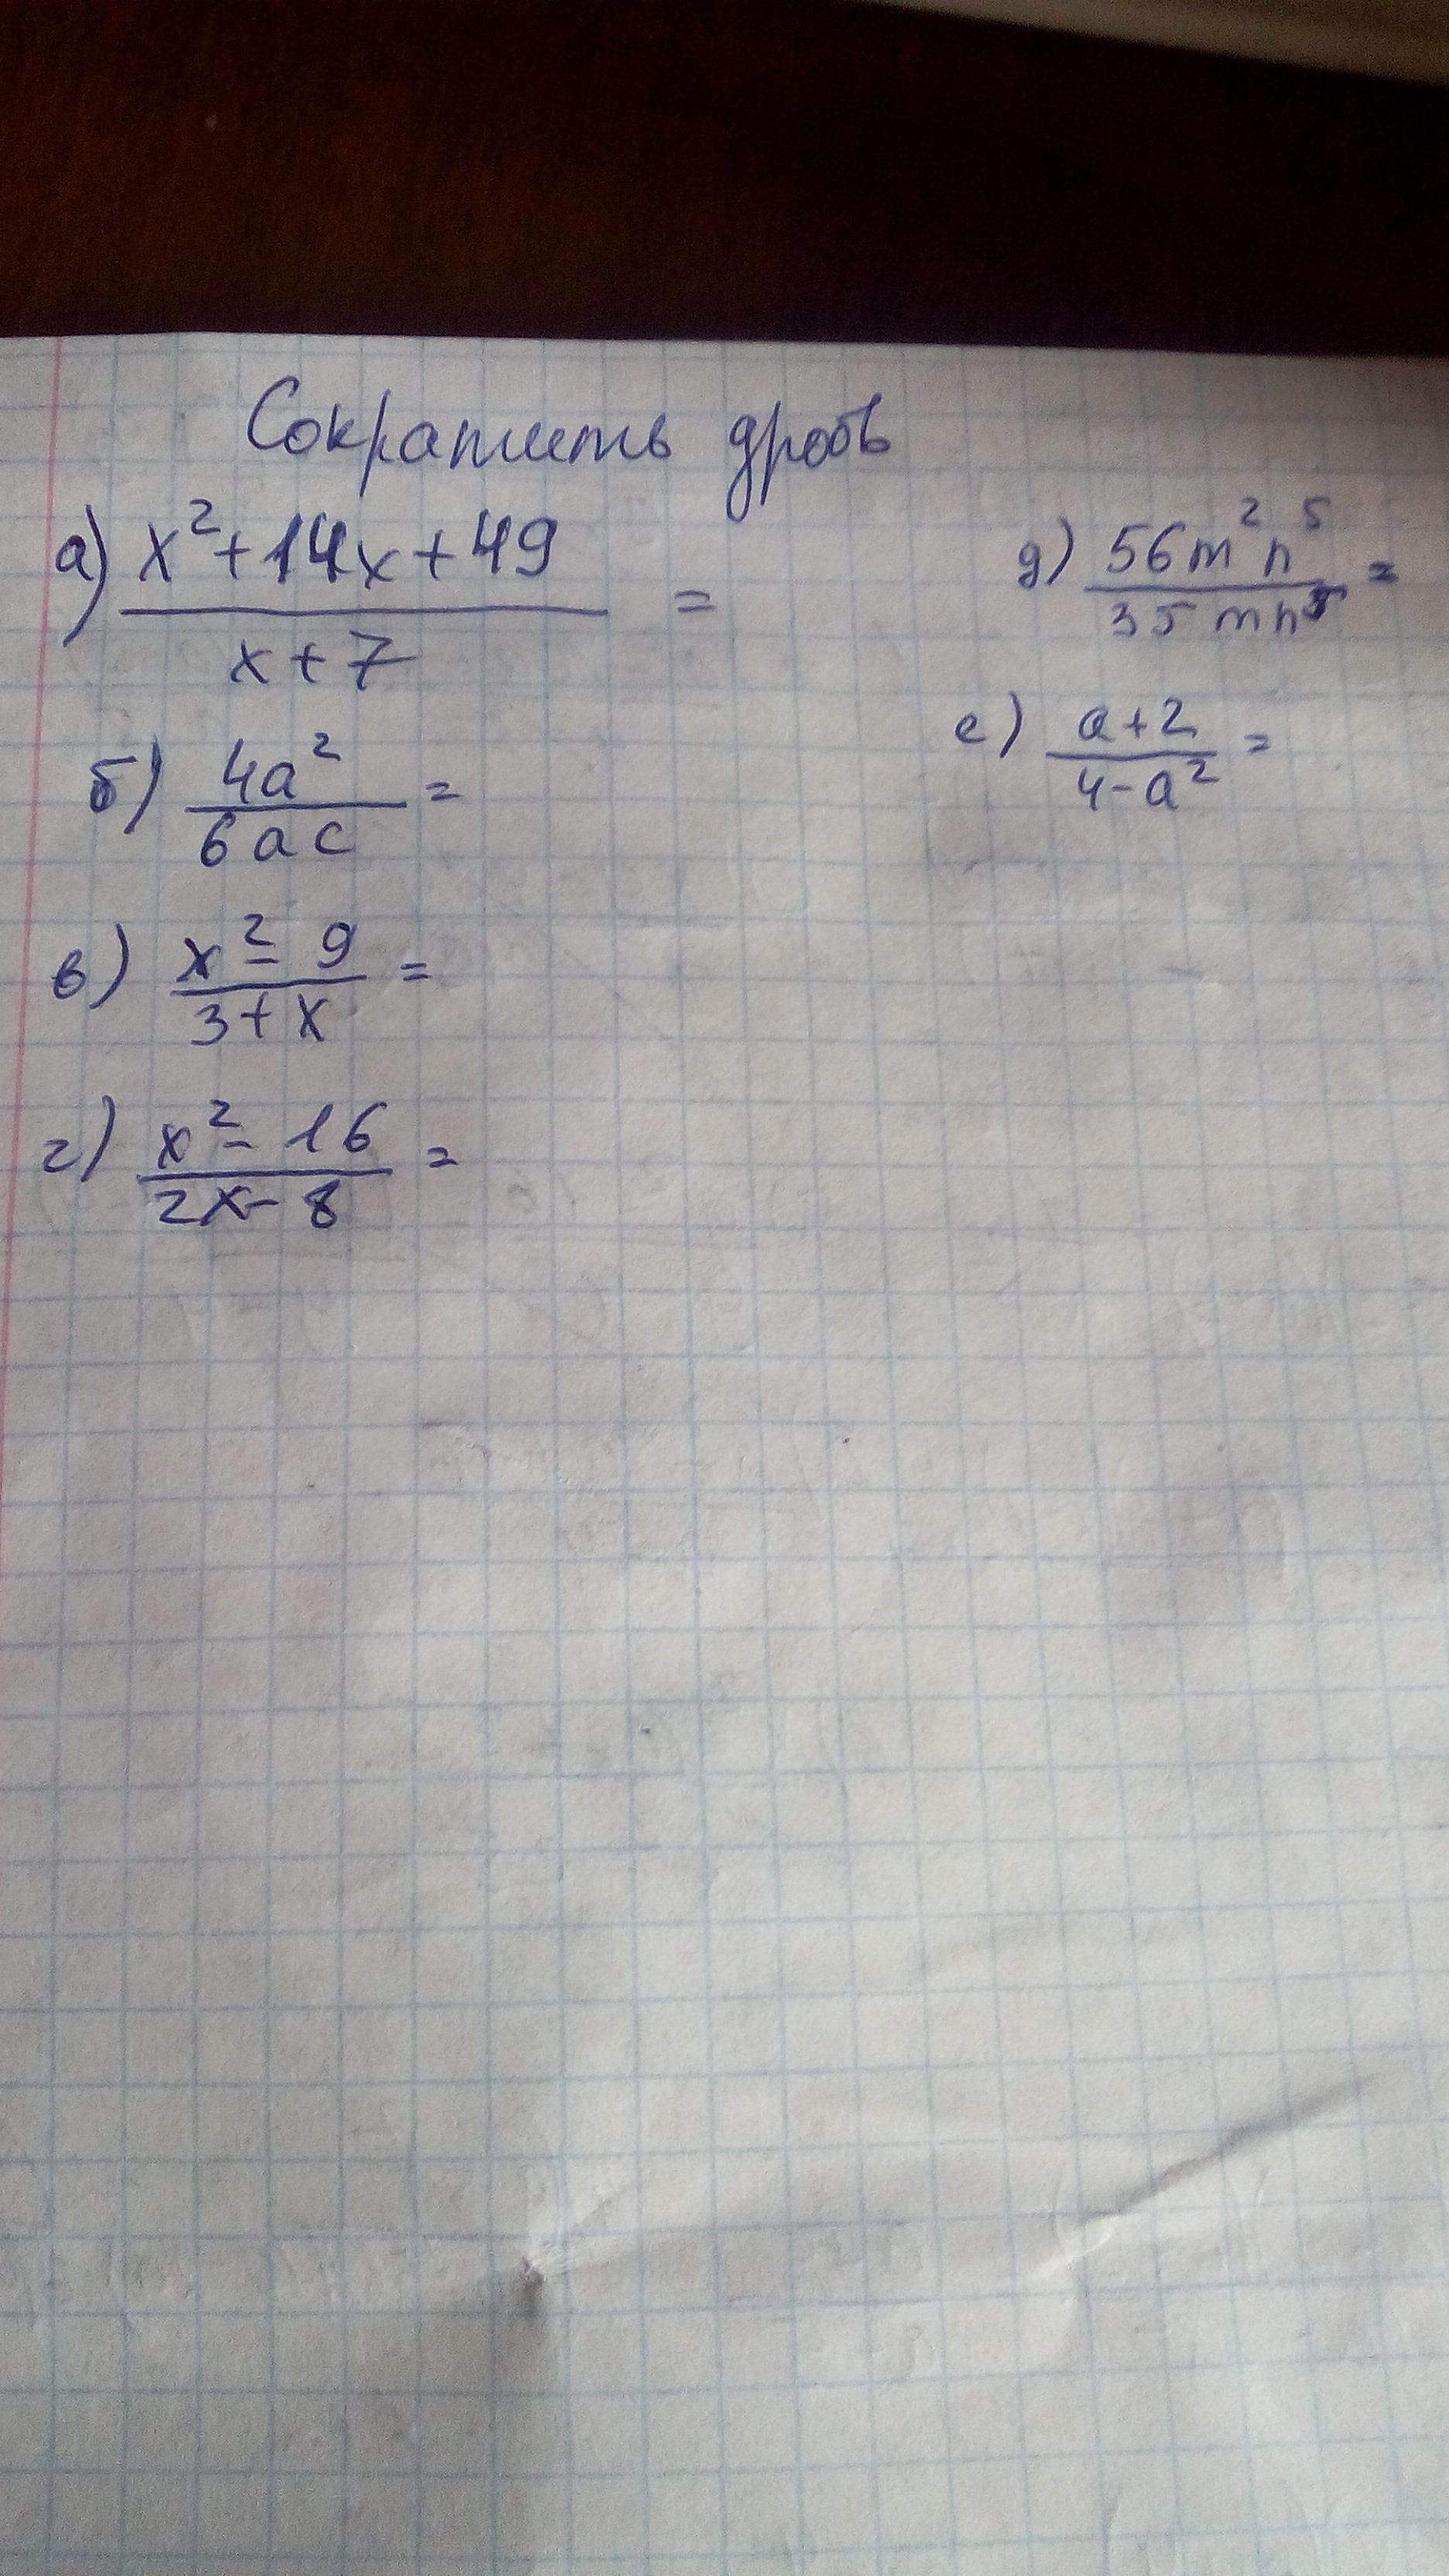 Сократить дробь
а) (x²+14x+49)/(x+7) =
б) 4a²/6ac =
в) (x²-9)/(3+x) =
г) (x²-16)/(2x-8) =
д) 56m²n⁵/35mn⁵ =
е) (a+2)/(4-a²) =